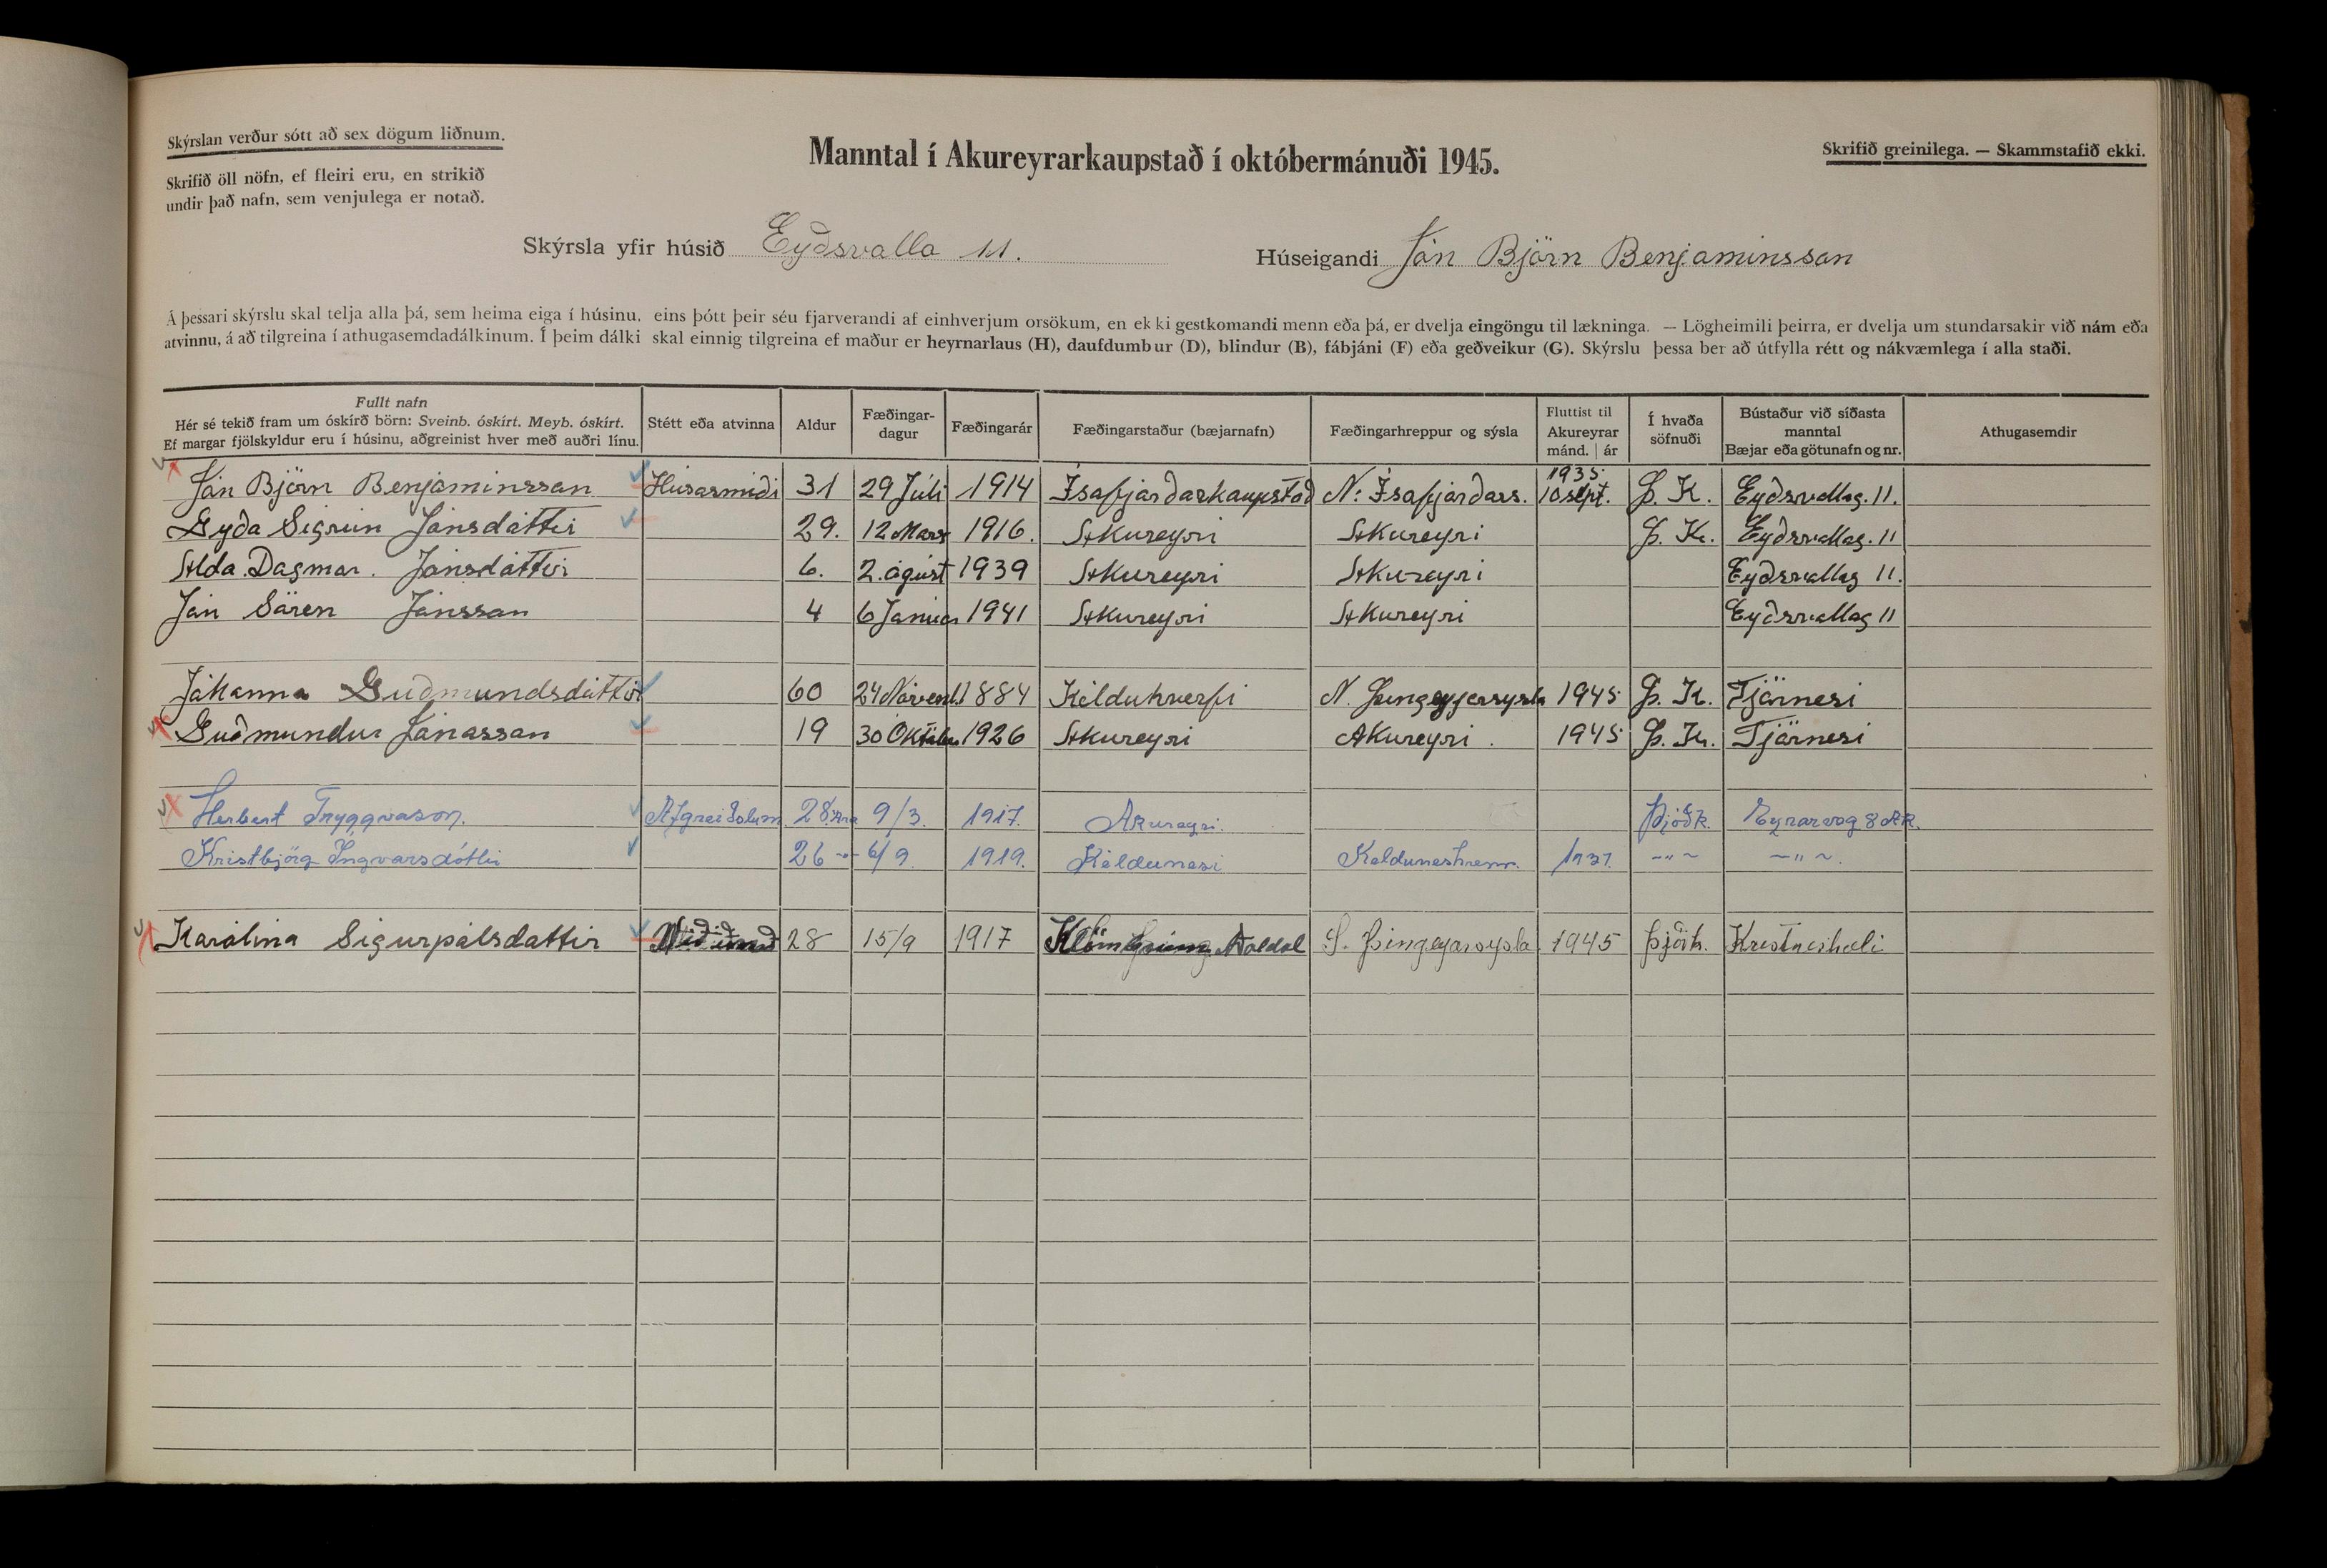 Skýrslan verður sótt að sex dögum liðnum.
Skrifið öll nöfn, ef fleiri eru, en strikið
undir það nafn, sem venjulega er notað.
Manntal í Akureyrarkaupstað í októbermánuði 1945.
Skrifið greinilega. — Skammstafið ekki.
Skýrsla yfir húsið Eyðsvalla 11.
Húseigandi Ján Björn Benjaminssan
Á þessari skýrslu skal telja alla þá, sem heima eiga í húsinu, eins þótt þeir séu fjarverandi af einhverjum orsökum, en ekki gestkomandi menn eða þá, er dvelja eingöngu til lækninga. — Lögheimili þeirra, er dvelja um stundarsakir við nám eða
atvinnu, á að tilgreina í athugasemdadálkinum. Í þeim dálki skal einnig tilgreina ef maður er heyrnarlaus (H), daufdumbur (D), blindur (B), fábjáni (F) eða geðveikur (G). Skýrslu þessa ber að útfylla rétt og nákvæmlega í alla staði.
Fullt nafn
Hér sé tekið fram um óskírð börn: Sveinb. óskírt. Meyb. óskírt.
Ef margar fjölskyldur eru í húsinu, aðgreinist hver með auðri línu.
Stétt eða atvinna
Aldur
Fæðingar-
dagur
Fæðingarár
Fæðingarstaður (bæjarnafn)
Fæðingarhreppur og sýsla
Fluttist til
Akureyrar
mánd. | ár
Í hvaða
söfnuði
Bústaður við síðasta
manntal
Bæjar eða götunafn og nr.
Athugasemdir
Ján Björn Benjaminssan Húsasmiði 31 29 Júli 1914 Ísafjarðarkaupstað N. Ísafjarðars. 1935 10 sept. Þ. K. Eyðsvallag. 11.
Gyða Sigrún Jánsdáttir 29. 12 Mars 1916. Akureyri Akureyri Þ. K. Eyðsvallag. 11
Alda Dagmar Jánsdáttir 6. 2. ágúst 1939 Akureyri Akureyri Eyðsvallag 11.
Ján Sären Jánssan 4 6 Janúar 1941 Akureyri Akureyri Eyðsvallag 11
Jáhanna Guðmundsdáttir 60 24 Návemb. 1884 Kelduhverfi N. Þingeyjarsysla 1945 Þ. K. Tjärnesi
Guðmundur Jánassan 19 30 Oktáber 1926 Akureyri Akureyri. 1945 Þ. K. Tjärnesi
Herbert Tryggvason. Afgreiðslum. 28 ára 9/3. 1917. Akureyri. Þjóðk. Eyrarveg 8 Ak.
Kristbjörg Ingvarsdóttir 26 -"- 6/9. 1919. Keldunesi Kelduneshrepp. 1937. -"- -"-.
Karálina Sigurpálsdattir 28 15/9 1917 Aaldal S. Þingeyarsysla 1945 Þjóðk. Kristneshæli